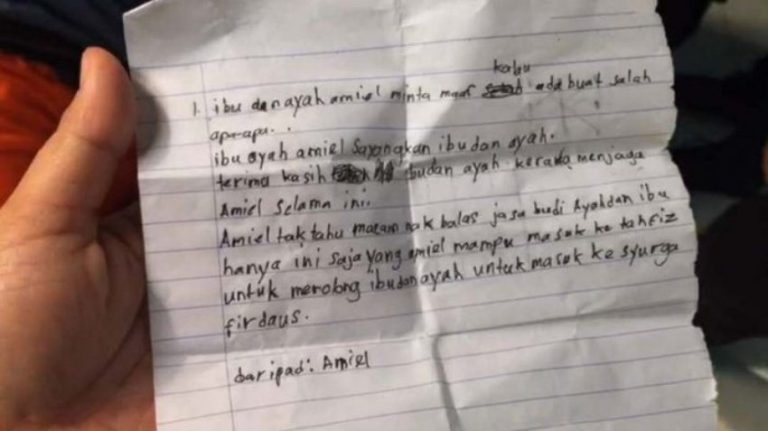 kalau
1. ibu dan ayah amiel minta maaf ada buat salah
apa-apa..
ibu ayah amiel sayangkan ibu dan ayah.
terima kasih ibu dan ayah kerana menjaga
Amiel selama ini.
Amiel tak tahu macam nak balas jasa budi Ayah dan ibu
hanya ini saja yang amiel mampu masuk ke tahfiz
untuk menolong ibu dan ayah untuk masuk ke syurga
firdaus.
daripad: Amiel